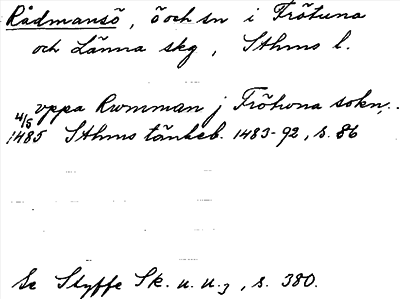 Rådmansö, ö och sn i Frötuna
och Länna skg, Sthms l.
vppa Rwmman j Frötwna sokn,..
4/5
1485 Sthms tänkeb. 1483-92, s. 86
Se Styffe Sk. u. u.3, s. 380.